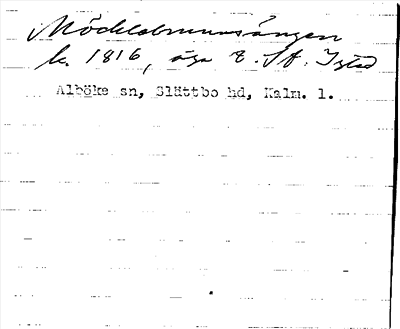 Mödelsbrunnsängen
k. 1816, äga E. St. Igtad
Alböke sn, Slättbo hd, Kalm. l.